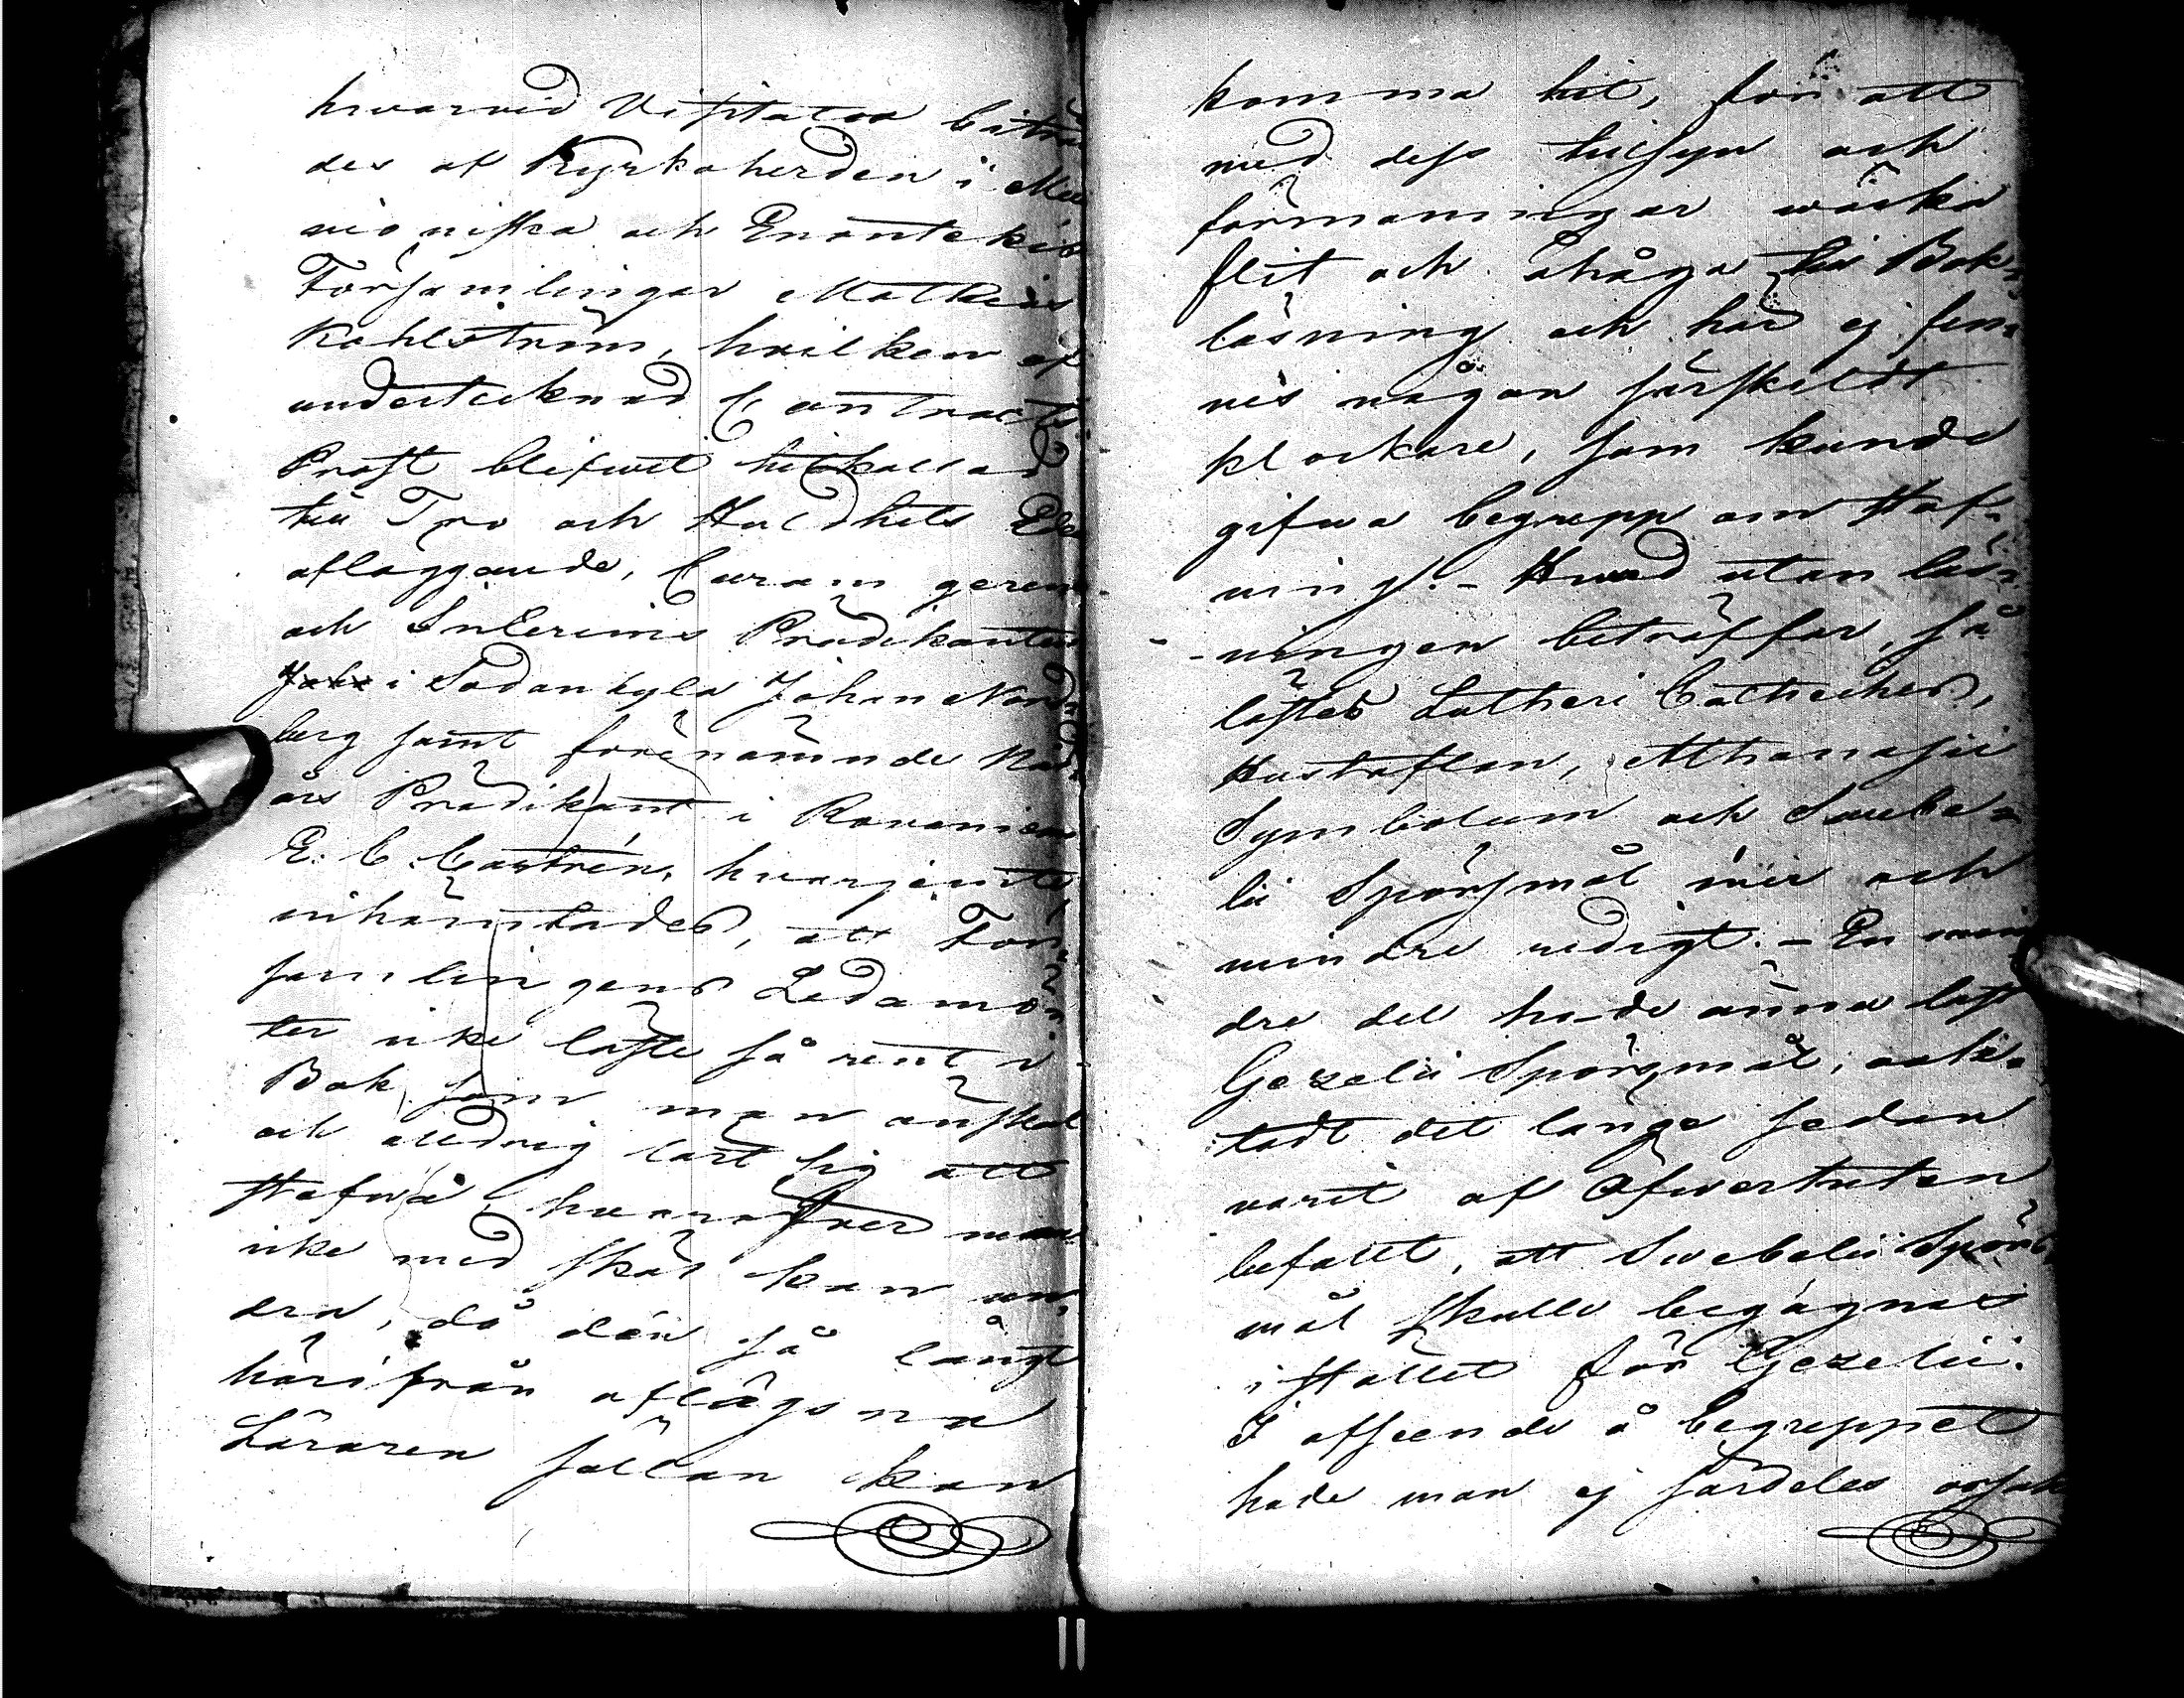 hvarvid Visitator biträ
des af Kyrkoherden i Muo
nioniska och Enontekis
Församlingar Mathias
Kohlström, hvilken af
undertecknad Contracts
Prost blifwit hitkallad
till Tro och Huldhets Eds
afläggande, Curam gerens
och Interims Prädikanten
i Sodankylä Johan Nord¬
berg samt förenämnde Nåd¬
års Prädikant i Rovaniemi
E. C. Castrén, hvarjemte
inhämtades, att För¬
samlingens Ledamö¬
ter icke läste så rent i
Bok, som man önskat
och alldrig lärt sig att
stafwa, hvaröfver man
icke med skäl kan un¬
dra, då den så långt
härifrån aflägsna
Läraren sällan kan
komma hit, för att
med dess tillsyn och
förmaningar wäcka
flit och åhåga till Bok¬
läsning och här ej fin¬
nes någon särskildt
klockare, som kunde
gifwa begrepp om staf¬
ning. - Hwad utan läs¬
ningen beträffar, så
lästes Lutheri Catheches,
Hustaflan, Athanasii
Symbolum och Suebe¬
lii Spörsmål mer och
mindre redigt. - En min
dre del hade ännu läst
Gezelii Spörsmål, oak¬
tadt det länge sedan
varit af Öfwerheten
befallt, att Swebelii Spörs
mål skulle begagnas
i stället för Gezelii.
I afseende å begreppet
hade man ej särdeles orsak